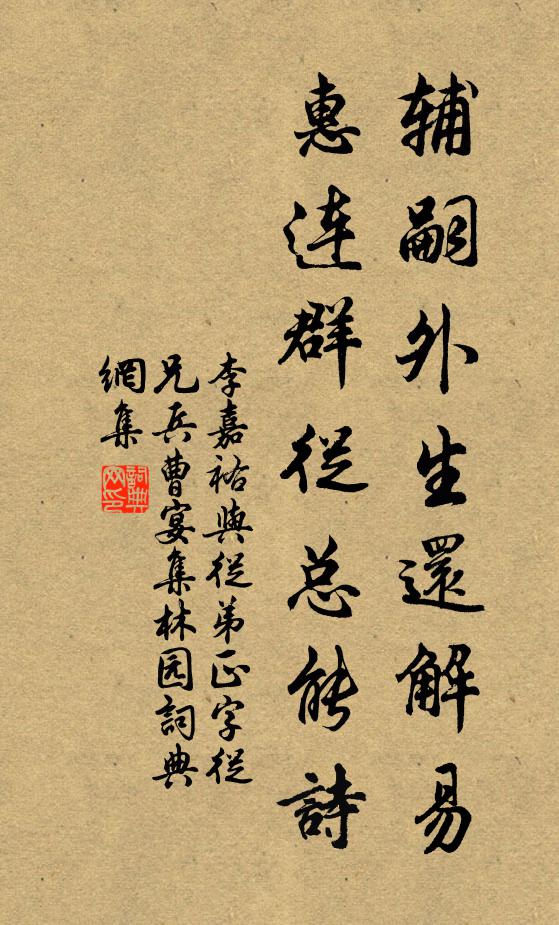 辅嗣外生還解易
惠連群從总能詩
李嘉祐與從弟正字從
兄兵曹宴集林园詞典
網集
詞典
网印